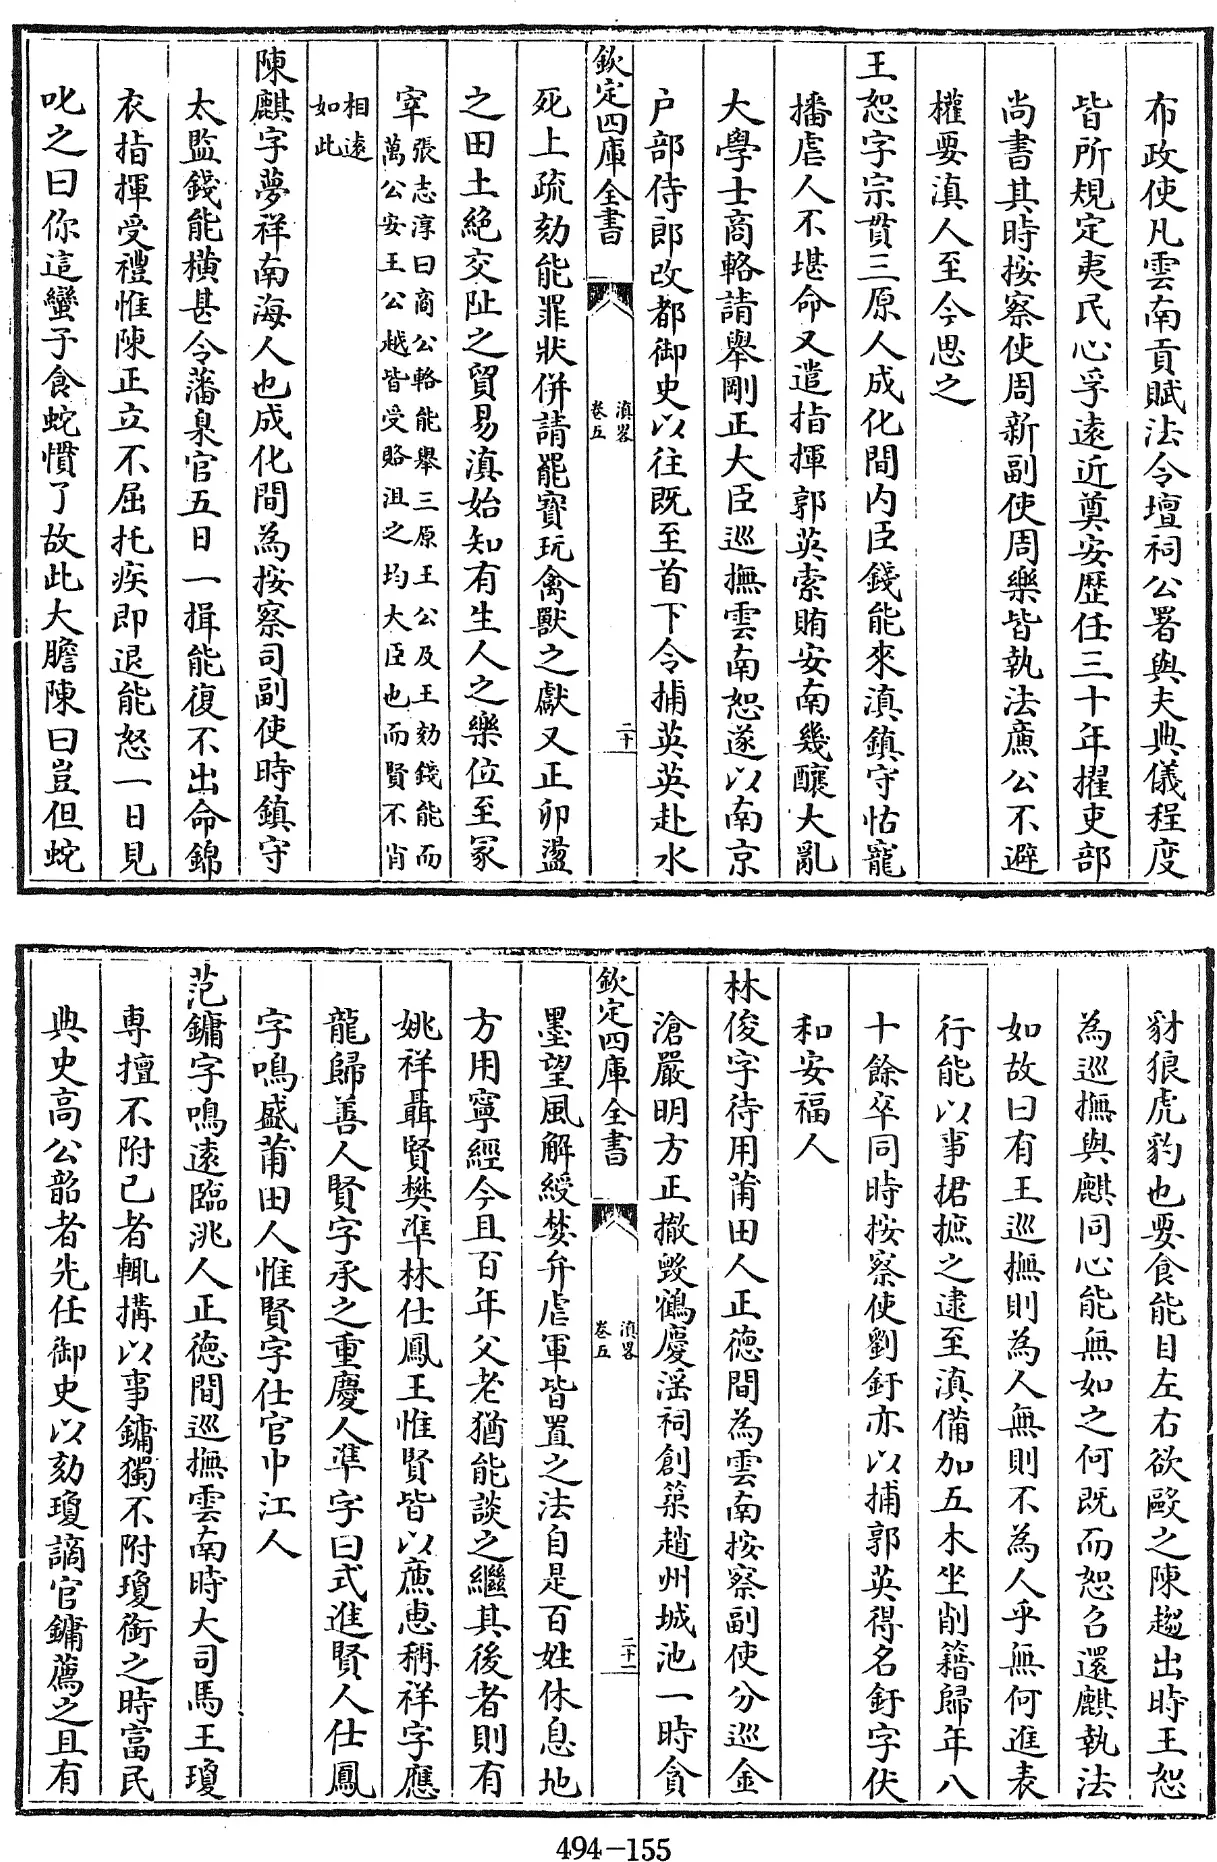 布政使凡雲南貢賦法令壇祠公署與夫典儀程度
皆所規定夷民心孚遠近奠安歴任三十年擢吏部
尚書其時按察使周新副使周樂皆執法廉公不避
權要滇人至今思之
王恕字宗貫三原人成化間内臣錢能來滇鎮守怙寵
播虐人不堪命又遣指揮郭英索賄安南幾釀大亂
大學士商輅請舉剛正大臣巡撫雲南恕遂以南京
户部侍郎改都御史以往既至首下令捕英英赴水
欽定四庫全書
滇畧
卷五
二十
死上疏劾能罪狀併請罷寳玩禽獸之獻又正卯盪
之田土絶交阯之貿易滇始知有生人之樂位至冢
宰張志淳曰商公輅能舉三原王公及王劾錢能而
萬公安王公越皆受賂沮之均大臣也而賢不肖
相逺
如此
陳麒字夢祥南海人也成化間為按察司副使時鎮守
太監錢能横甚令藩臬官五日一揖能復不出命錦
衣指揮受禮惟陳正立不屈托疾即退能怒一日見
叱之曰你這蠻子食蛇慣了故此大膽陳曰豈但蛇
豺狼虎豹也要食能目左右欲毆之陳趨出時王恕
為巡撫與麒同心能無如之何既而恕召還麒執法
如故曰有王巡撫則為人無則不為人乎無何進表
行能以事捃摭之逮至滇備加五木坐削籍歸年八
十餘卒同時按察使劉釪亦以捕郭英得名釪字伏
和安福人
林俊字待用莆田人正德間為雲南按察副使分巡金
滄嚴明方正撤毁鶴慶淫祠創築趙州城池一時貪
欽定四庫全書
滇畧
卷五
二十一
墨望風解綬婪弁虐軍皆置之法自是百姓休息地
方用寧經今且百年父老猶能談之繼其後者則有
姚祥聶賢樊準林仕鳳王惟賢皆以廉恵稱祥字應
龍歸善人賢字承之重慶人準字曰式進賢人仕鳳
字鳴盛莆田人惟賢字仕官中江人
范鏞字鳴逺臨洮人正德間巡撫雲南時大司馬王瓊
専擅不附己者輒搆以事鏞獨不附瓊銜之時富民
典史高公韶者先任御史以劾瓊謫官鏞薦之且有
494-155